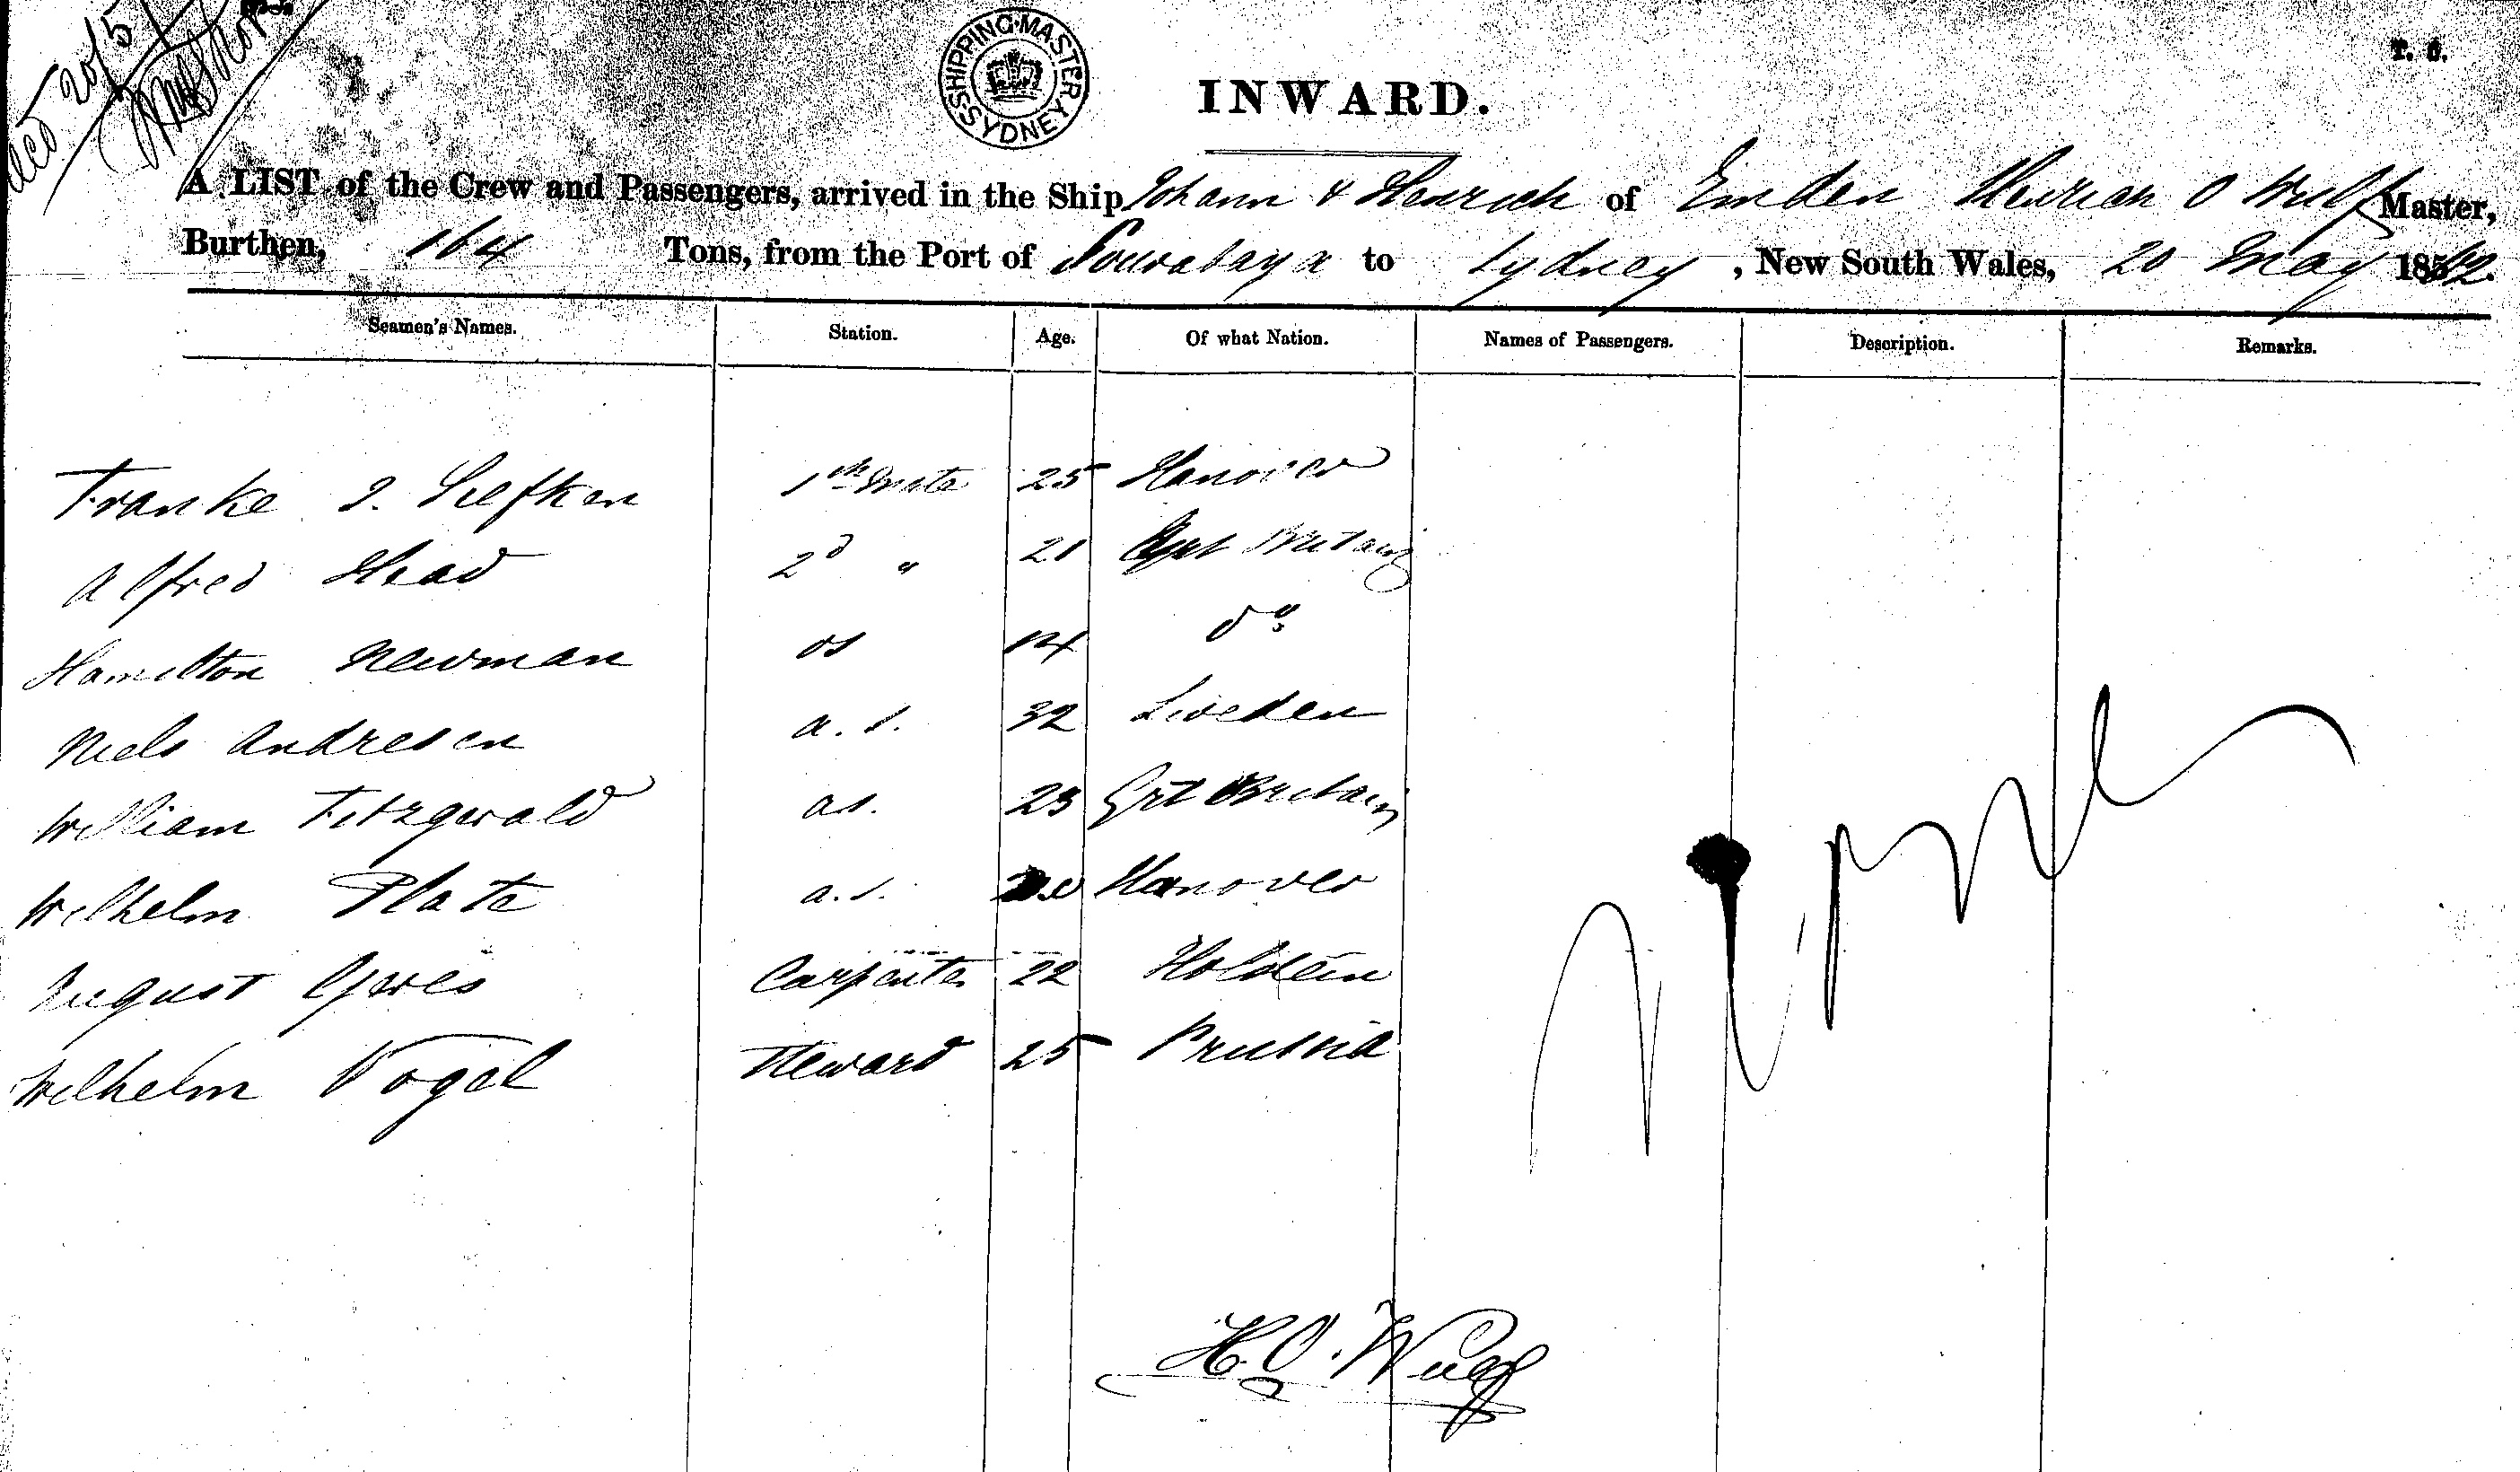 SHIPPING MASTER SYDNEY
T. C.
INWARD.
A LIST of the Crew and Passengers, arrived in the Ship Johann & Henrich of Emden Henrich O Wulff Master,
Burthen, 164 Tons, from the Port of Sourabaya to Sydney, New South Wales, 20 May 1862.
Seamen's Names. Station. Age. Of what Nation. Names of Passengers. Description. Remarks.
Franke J. Siefken 1st Mate 25 Hanover
Alfred Head 2d " 21 Grt Britain
Hamilton Newman os 14 do
Niels Andresen a.s. 32 Sweden
William Fitzgerald as. 23 Grt Britain
Wilhelm Plate a.s. Hanover
August Carpenter 22 Holstein
Wilhelm Vogel Steward 25 Prussia
H. O. Wulff